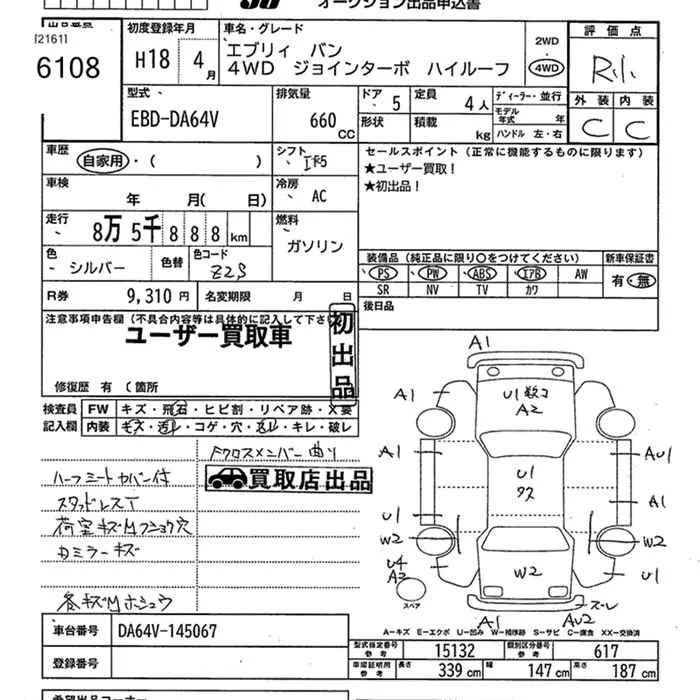 オークション出品申込書
出品番号 初度登録年月 車名・グレード 評価点
[2161]
6108 H18 4月
エブリィ バン
4WD ジョインターボ ハイルーフ
2WD
4WD
外装 内装
C C
型式 排気量 ドア 5 定員 4人 ディーラー・並行
EBD-DA64V 660 CC
モデル年式 年
形状 積載 kg ハンドル 左・右
車歴 自家用・( ) シフト
セールスポイント (正常に機能するものに限ります)
★ユーザー買取!
★初出品!
車検 年 月( 日) 冷房 AC
走行 8万 5千 8 8 8 km 燃料 ガソリン
色 シルバー 色替 色コード Z2S
装備品 (純品正に限り〇をつけてください) 新車保証書
PS PW ABS エアB AW 有・無
SR NV TV カワ
R券 9,310 円 名変期限 月 日
後日品
注意事項申告欄 (不具合内容等は具体的に記入して下さい)
ユーザー買取車
初出品
修復歴 有 (箇所
検査員 FW キズ・飛石・ヒビ割・リペア跡・X要
記入欄 内装 キズ・汚レ・コゲ・穴・スレ・キレ・破レ
Fクロスメンバー曲り
買取店出品
ハーフミートカバー付
スタッドレスT
荷室キズMフショウ穴
カミラーキズ
各キズMホシュウ
A1
A1 U1数コ A2
A1 AU1
U1
A1
U1
W2 W2
U4
A2 W2 U1
スペア
スレ
A1 AU2
A-キズ E-エクボ U-凹み W-補修跡 S-サビ C-腐食 XX-交換済
車台番号 DA64V-145067
登録番号
型式指定番号 参考 15132 類別区分番号 参考 617
車庫証明用 参考 長さ 339 cm 幅 147 cm 高さ 187 cm